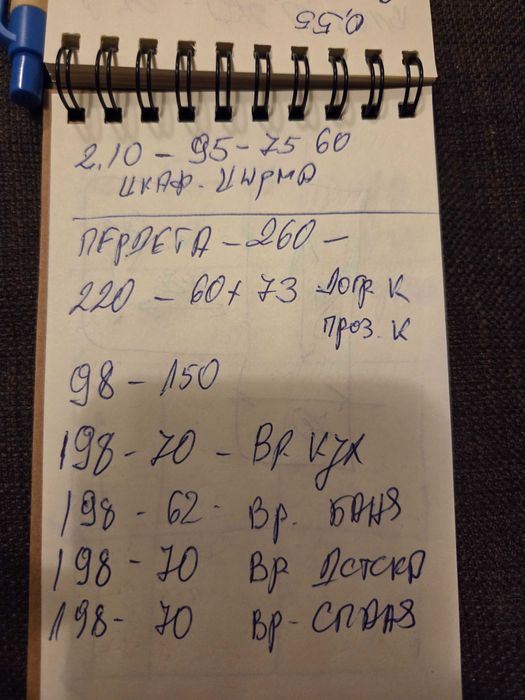 0,55
2.10 – 95 – 75 60
ШКАФ - ШИРМА
ПЕРДЕТА – 260 –
220 – 60 + 73 Догр К
проз. К
98 – 150
198 – 70 – Вр кух
198 – 62 - Вр. БАНЯ
198 – 70 Вр ДЕТСКА
198 – 70 Вр - СПАЛНЯ